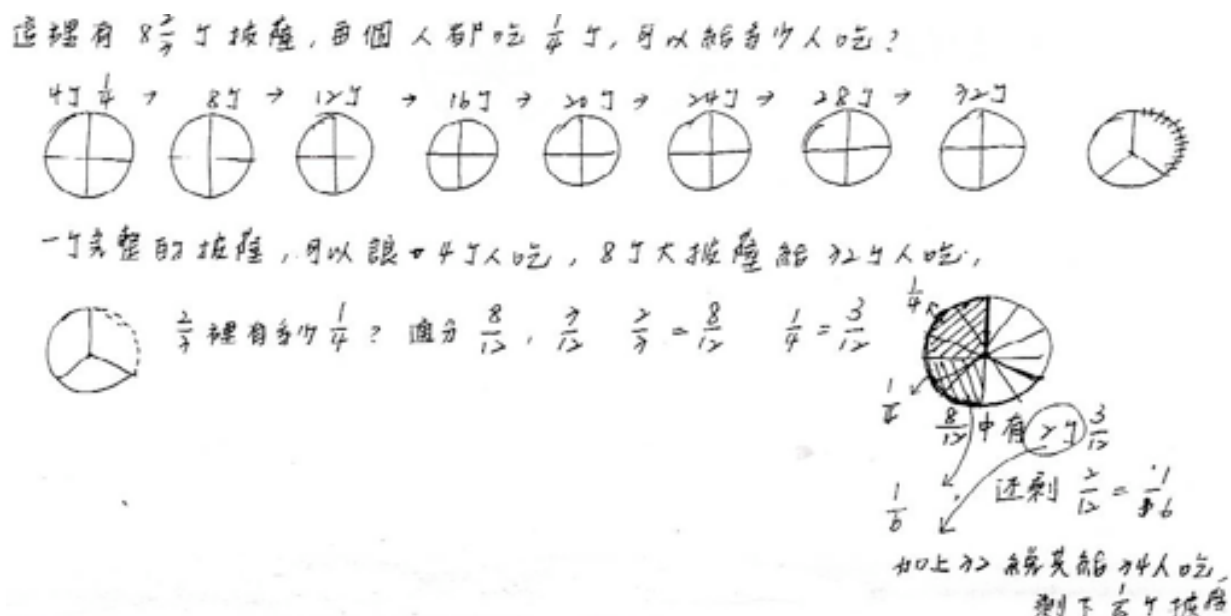 這裡有 8 2/3 个披薩,每個人都吃 1/4 个,可以給多少人吃?
4个 1/4 → 8个 → 12个 → 16个 → 20个 → 24个 → 28个 → 32个
一个完整的披薩,可以讓 4个人吃,8个大披薩給 32个人吃,
2/3 裡有多少 1/4? 通分 8/12, 3/12 2/3 = 8/12 1/4 = 3/12
1/4
8/12 中有 2个 3/12
还剩 2/12 = 1/6
1/6
加上 32 總共給 34人吃,
剩下 1/6 个披薩